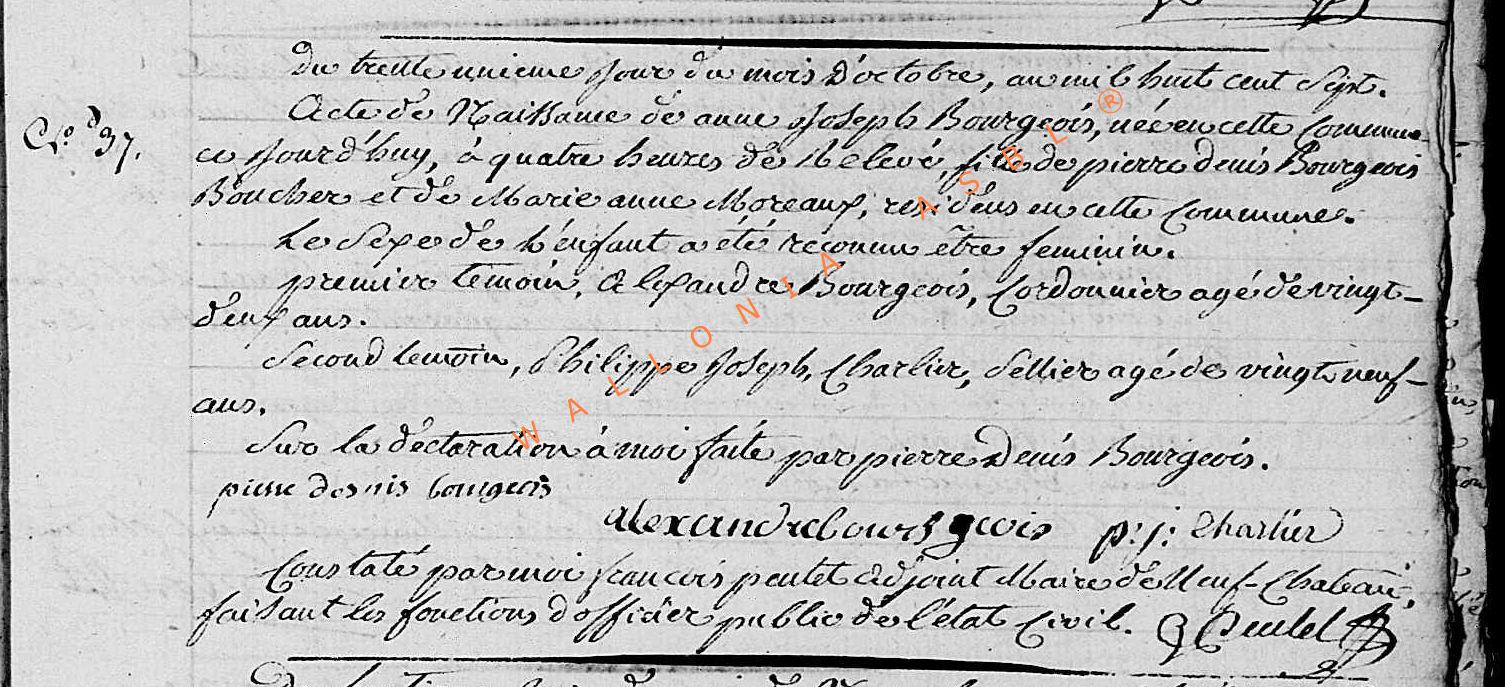 Du trente unieme Jour du mois D'octobre, an mil huit cent Sept.
Acte de Naissance de anne Joseph Bourgeois, née en cette Commune
N.o 37.
ce Jourd'huy, à quatre heures de Relevé, fille de pierre denis Bourgeois
Boucher et de Marie anne Moreaux, residens en cette Commune.
Le Sexe de l'enfant a été reconnu être feminin.
premier temoin, Alexandre Bourgeois, Cordonnier agé de vingt-
deux ans.
Second temoin, Philippe Joseph, Charlier, Sellier agé de vingt neuf-
ans.
Sur la déclaration à moi faite par pierre Denis Bourgeois.
pierre desnis bourgeois
alexandre bourgeois p: j: Charlier
Constaté par moi francois poulet adjoint Maire de Neuf-Chateau,
faisant les fonctions d'officier public de l'état Civil.
WALLONIA ASBL ®